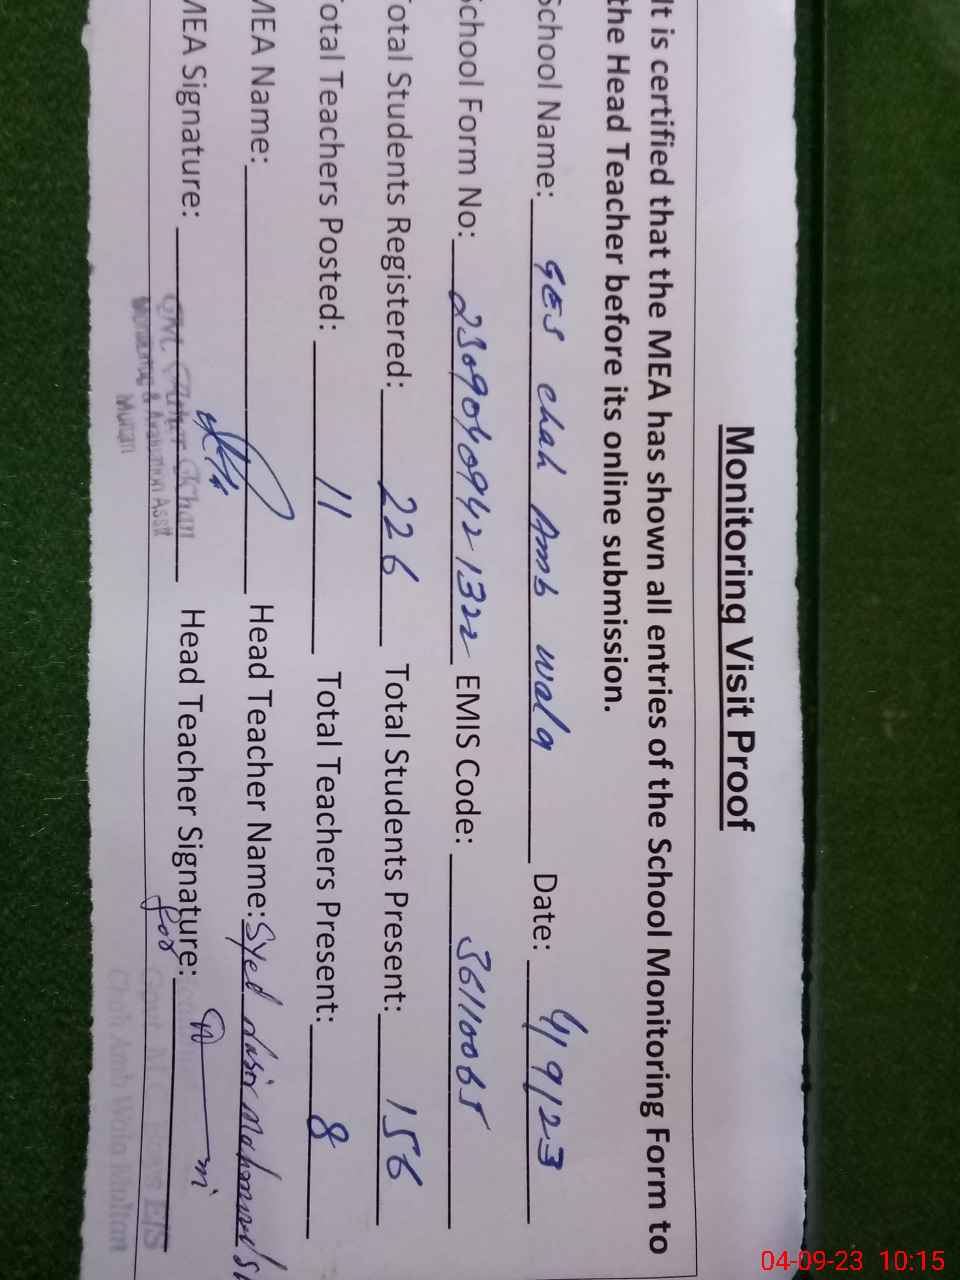 Monitoring Visit Proof
It is certified that the MEA has shown all entries of the School Monitoring Form to
the Head Teacher before its online submission.
School Name: GES chah Amb wala Date: 4/9/23
School Form No: EMIS Code: 36110065
Total Students Registered: 226 Total Students Present: 156
Total Teachers Posted: 11 Total Teachers Present: 8
MEA Name: Head Teacher Name: Syed
MEA Signature: Head Teacher Signature:
for
Monitoring & Evaluation Asstt
Multan
Chah Amb Wala Multan
04-09-23 10:15